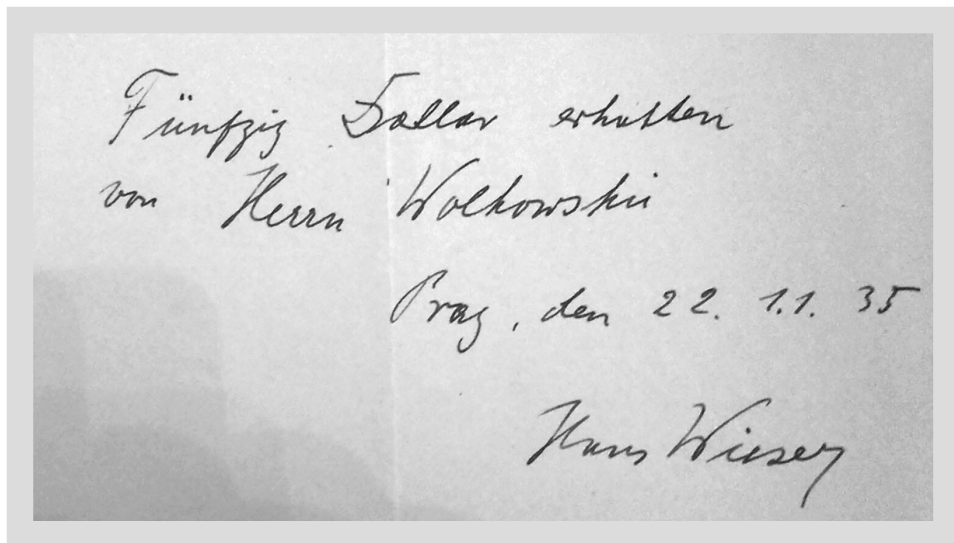 Fünfzig Dollar erhalten
von Herrn Wolkowskii
Prag, den 22. 1.1. 35
Hans Wieser